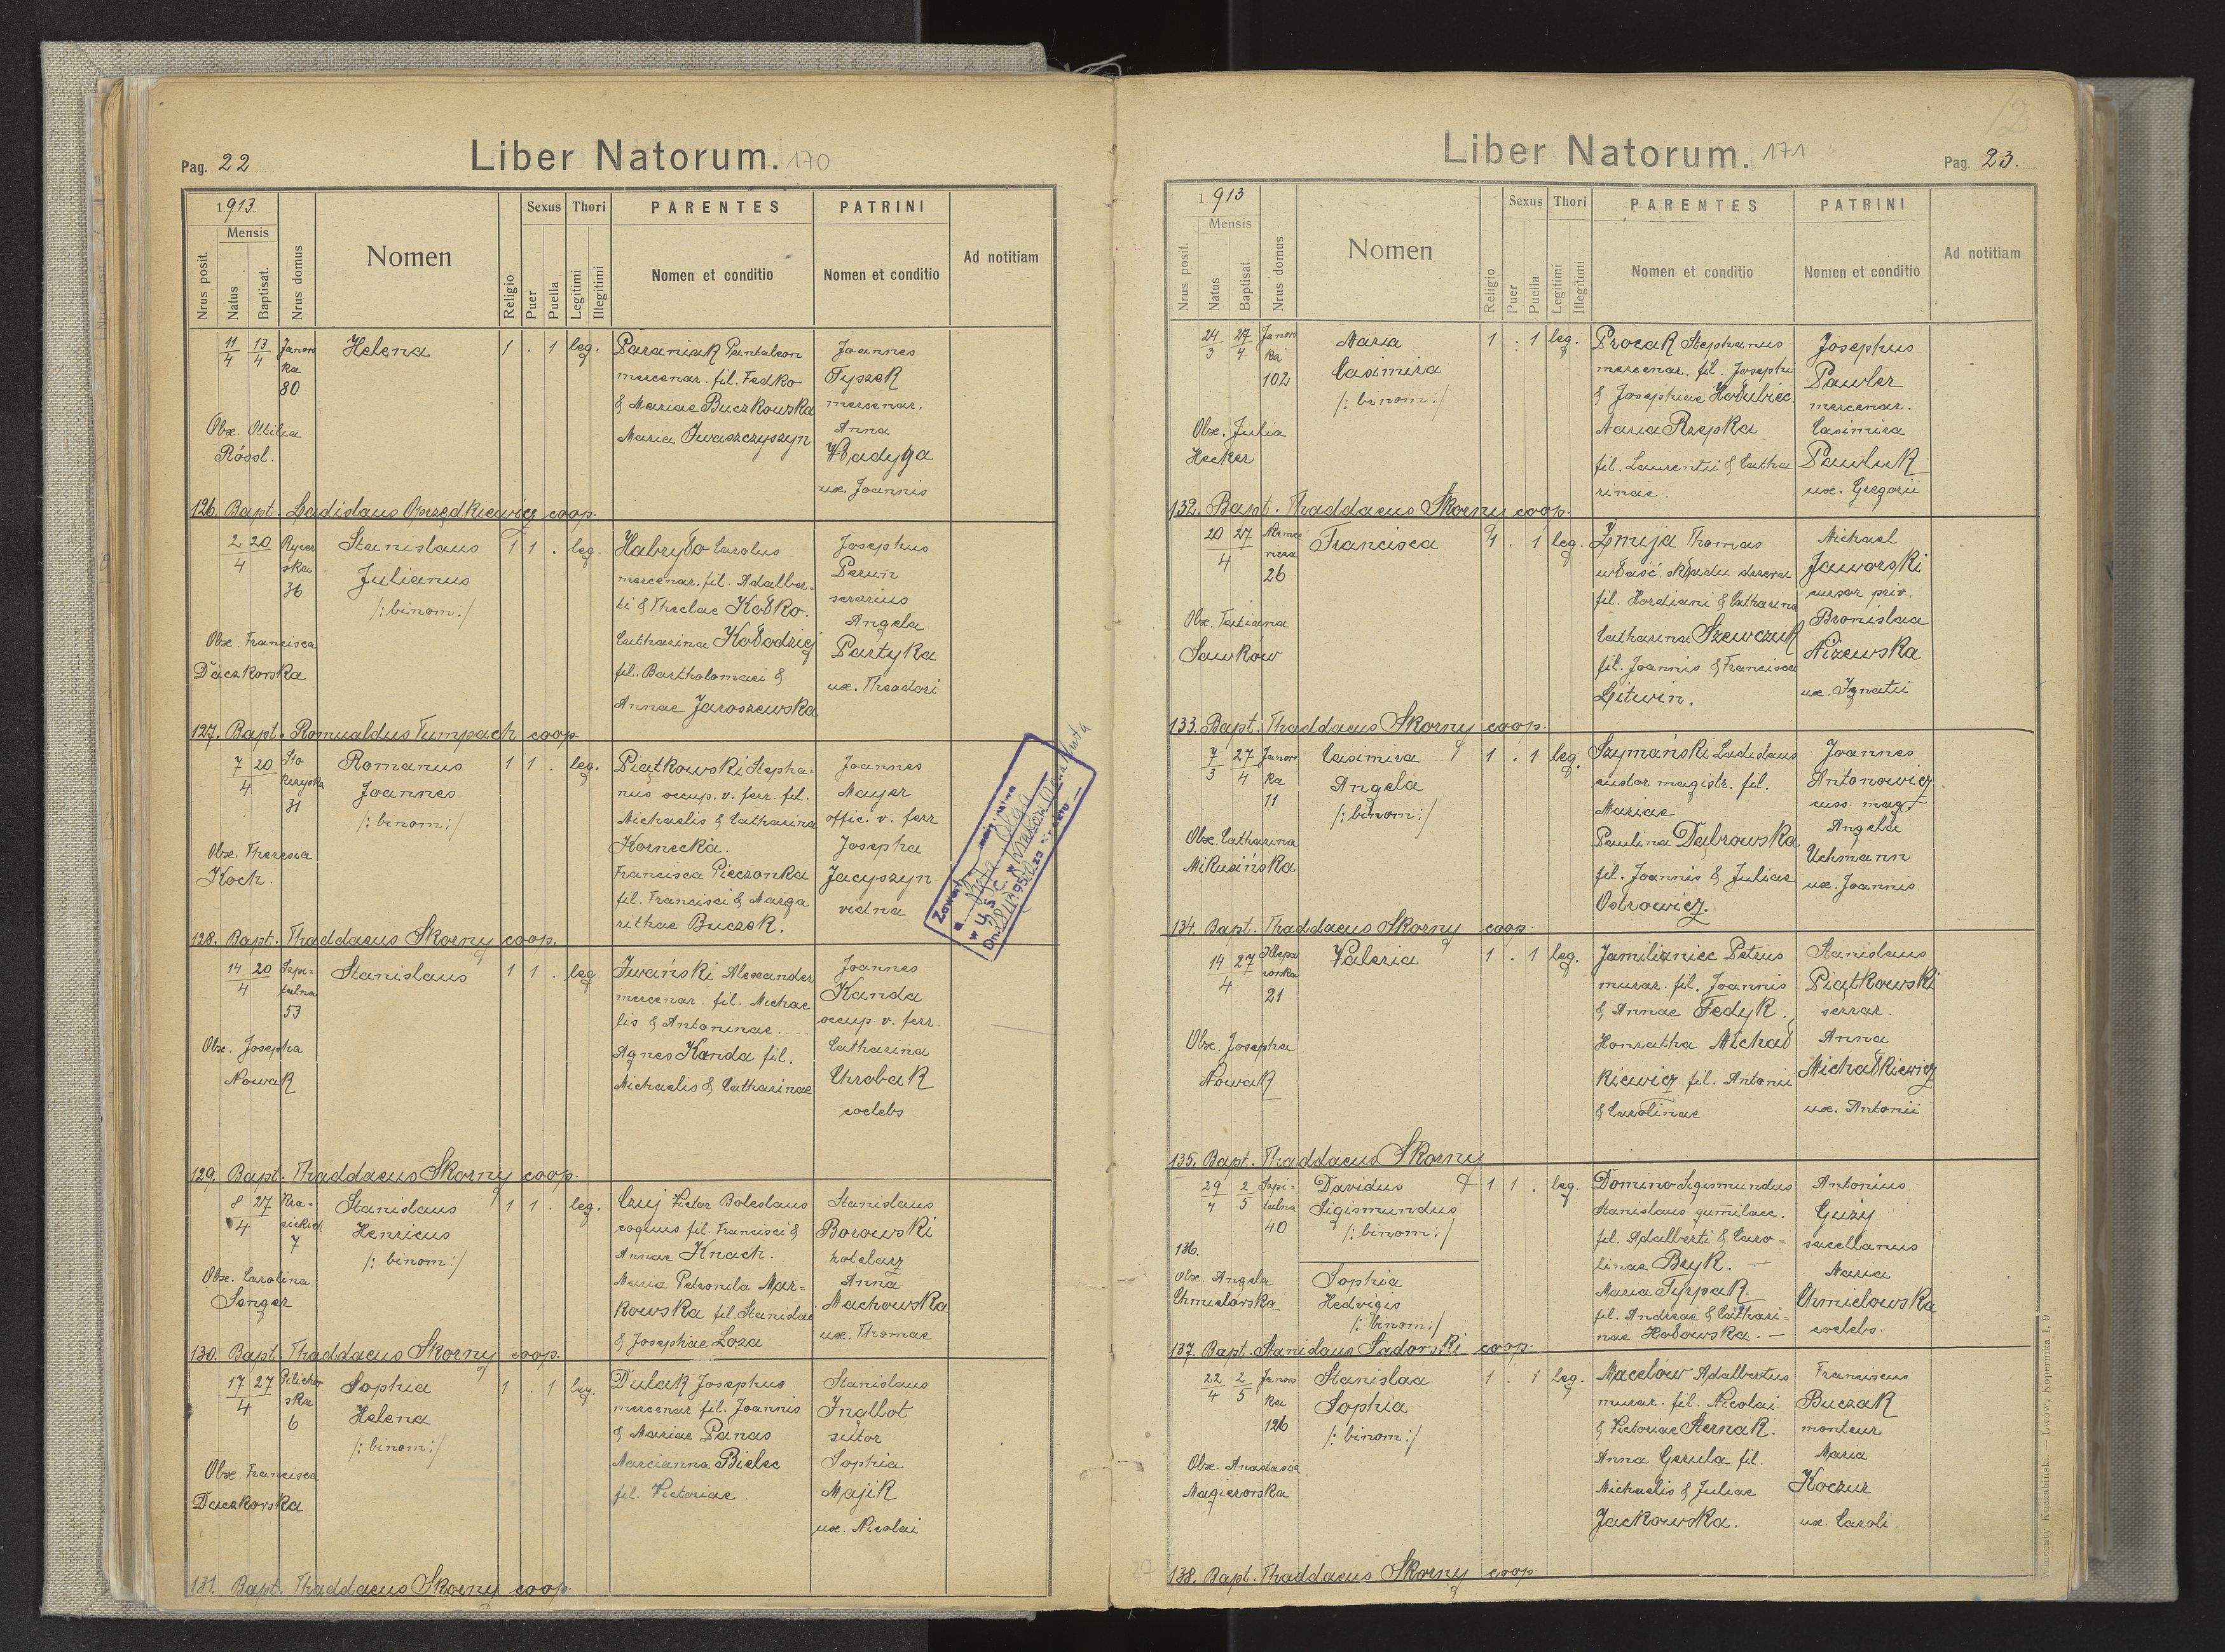 Pag. 22
Liber Natorum. 170
1913
Mensis
Nrus posit.
Natus
Baptisat.
Nrus domus
Nomen
Religio
Sexus
Puer
Puella
Thori
Legitimi
Illegitimi
PARENTES
Nomen et conditio
PATRINI
Nomen et conditio
Ad notitiam
11/4 13/4 Janow
ka
80
Helena
1 . 1 leg.
Paraniak Pantaleon
mercenar. fil. Fedko
& Mariae Buczkowska
Maria Iwaszczyszyn
Joannes
Tyszek
mercenar.
Anna
Władyga
ux. Joannis
Obx. Ottilia
Rössl.
126. Bapt. Ladislaus Oprzędkiewicz coop.
2 20
4
Rycer
ska
36
Stanislaus
Julianus
/: binom :/
1 1 . leg.
Habryło Carolus
mercenar. fil. Adalber-
ti & Theclae Kołko.
Catharina Kołodziej
fil. Bartholomaei &
Annae Jaroszewska
Josephus
Perun
serarius
Angela
Partyka
ux. Theodori
Obx. Francisca
Daczkowska
127. Bapt. Romualdus Tumpach coop.
7 20
4
31
Romanus
Joannes
/: binom :/
1 1 . leg.
Piątkowski Stepha-
nus occup. v. ferr. fil.
Michaelis & Catharina
Kornecka.
Francisca Pieczonka
fil. Francisci & Marga
rithae Buczek.
Joannes
Mayer
offic. v. ferr
Josepha
Jacyszyn
vidua
Obx. Theresia
Koch.
128. Bapt. Thaddaeus Skorny coop.
14 20
4
Szpi-
talna
53
Stanislaus
1 1 . leg.
Iwański Alexander
mercenar. fil. Michae
lis & Antoninae.
Agnes Kanda fil.
Michaelis & Catharinae
Joannes
Kanda
occup. v. ferr.
Catharina
Chrobak
coelebs
Obx. Josepha
Nowak
129. Bapt. Thaddaeus Skorny coop.
8 27
4
7
Stanislaus
Henricus
/: binom :/
1 1 . leg.
Czuj Victor Boleslaus
coquus fil. Francisci &
Annae Knach.
Maria Petronila Mar-
kowska fil. Stanislai
& Josephae Loza
Stanislaus
Borowski
hotelarz
Anna
Machowska
ux. Thomae
Obx. Carolina
Senger
130. Bapt. Thaddaeus Skorny coop.
17 27
4
Pilichow
ska
6
Sophia
Helena
/: binom :/
1 . 1 leg.
Dulak Josephus
mercenar fil. Joannis
& Mariae Panas
Marcianna Bielec
fil. Victoriae
Stanislaus
Inglot
sutor
Sophia
Majik
ux. Nicolai
Obx. Francisca
Daczkowska
131. Bapt. Thaddaeus Skorny coop.
12
Liber Natorum. 171
Pag. 23.
1913
Mensis
Nrus posit.
Natus
Baptisat.
Nrus domus
Nomen
Religio
Sexus
Puer
Puella
Thori
Legitimi
Illegitimi
PARENTES
Nomen et conditio
PATRINI
Nomen et conditio
Ad notitiam
24/3 27/4 Janow
ka
102
Maria
Casimira
/: binom :/
1 . 1 leg.
Procak Stephanus
mercenar. fil. Josephi
& Josephae Hołubiec.
Maria Rzepka
fil. Laurentii & Catha
rinae.
Josephus
Pawler
mercenar.
Casimira
Pawluk
ux. Gregorii
Obx. Julia
Hecker
132. Bapt. Thaddaeus Skorny coop.
20 27
4
26
Francisca
1 . 1 leg.
Żmija Thomas
właśc. składu drzewa
fil. Hordiani & Catharina
Catharina Szewczuk
fil. Joannis & Francisca
Litwin.
Michael
Jaworski
cursor priv.
Bronislaa
Niżewska
ux. Ignatii
Obx. Tatiana
Sawkow
133. Bapt. Thaddaeus Skorny coop.
7 27
3 4
Janow
ka
11
Casimira
Angela
/: binom :/
1 . 1 leg.
Szymański Ladislaus
custor magistr. fil.
Mariae
Paulina Dąbrowska
fil. Joannis & Juliae
Ostrowicz.
Joannes
Antonowicz
cuss. mag.
Angela
Uchmann
ux. Joannis
Obx. Catharina
Mikusińska
134. Bapt. Thaddaeus Skorny coop.
14 27
4
Klepa
rowska
21
Valeria
1 . 1 leg.
Jamilianiec Petrus
murar. fil. Joannis
& Annae Fedyk.
Honratha Michał
kiewicz fil. Antonii
& Carolinae
Stanislaus
Piątkowski
serrar.
Anna
Michałkiewicz
ux. Antonii
Obx. Josepha
Nowak
135. Bapt. Thaddaeus Skorny
29 2
4 5
Szpi-
talna
40
Davidus
Sigismundus
/: binom :/
1 1 . leg.
Domino Sigismundus
Stanislaus
fil. Adalberti & Caro-
linae Bryk.
Maria Tyrpak
fil. Andreae & Cathari-
nae Hołowska.
Antonius
Guzy
sacellanus
Maria
Chmielowska
coelebs.
136.
Obx. Angela
Chmielowska
Sophia
Hedvigis
/: binom :/
137. Bapt. Stanislaus Sadowski coop.
22 2
4 5
Janow
ka
126
Stanislaa
Sophia
/: binom :/
1 . 1 leg.
Macelów Adalbertus
murar. fil. Nicolai
& Victoriae Sternak.
Anna Gerula fil.
Michaelis & Juliae
Jackowska.
Franciscus
Buczak
monteur
Maria
Koczur
ux. Caroli.
Obx. Anastasia
Magierowska
138. Bapt. Thaddaeus Skorny coop.
Wincenty Kuczabiński. — Lwów, Kopernika l. 9